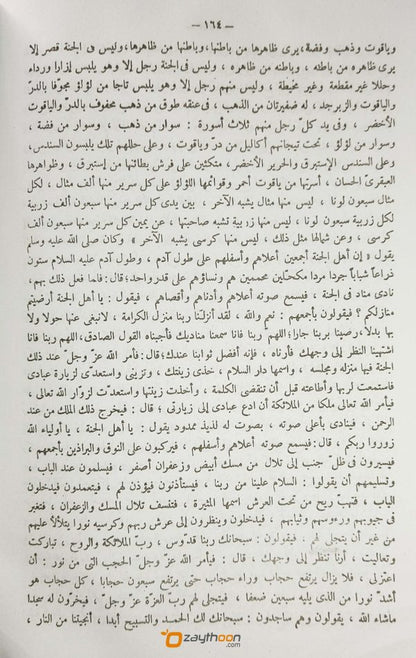 — ١٦٤ —
وياقوت وذهب وفضة، يرى ظاهرها من باطنها، وباطنها من ظاهرها، وليس فى الجنة قصر إلا
يرى ظاهره من باطنه ، وباطنه من ظاهره ، وليس فى الجنة رجل إلا وهو يلبس إزارا ورداء
وحللا غير مقطعة وغير مخيطة ، وليس منهم رجل إلا وهو يلبس تاجا من لؤلؤ مجوفا بالدرّ
والياقوت والزبرجد، له ضفيرتان من الذهب ، فى عنقه طوق من ذهب محفوف بالدرّ والياقوت
الأخضر ، وفى يد كلّ رجل منهم ثلاث أسورة : سوار من ذهب ، وسوار من فضة ،
وسوار من لؤلؤ ، تحت تيجانهم أكاليل من درّ وياقوت ، وعلى حللهم تلك يلبسون السندس،
وعلى السندس الإستبرق والحرير الأخضر، متكئين على فرش بطائنها من إستبرق ، وظواهرها
العبقرىّ الحسان ، أسرتها من ياقوت أحمر وقوائمها اللؤلؤ على كل سرير منها ألف مثال، لكل
مثال سبعون لونا ، ليس منها مثال يشبه الآخر ، بين يدى كل سرير منها سبعون ألف زربية
لكل زربية سبعون لونا ، ليس منها زربية تشبه صاحبتها ، عن يمين كل سرير منها سبعون ألف
كرسى ، وعن شمالها مثل ذلك ، ليس منها كرسى يشبه الآخر » وكان صلى الله عليه وسلم
يقول « إن أهل الجنة أجمعين أعلاهم وأسفلهم على طول آدم ، وطول آدم عليه السلام ستون
ذراعا شبابا جردا مردا مكحلين محممين هم ونساؤهم على قدر واحد؛ قال: فلما فعل ذلك بهم،
نادى مناد فى الجنة ، فيسمع صوته أعلاهم وأدناهم وأقصاهم ، فيقول : يا أهل الجنة أرضيتم
منازلكم ؟ فيقولون بأجمعهم : نعم والله ، لقد أنزلنا ربنا منزل الكرامة ، لانبغى عنها حولا ولا
بها بدلا، رضينا بربنا جارا؛ اللهم ربنا فانا سمعنا مناديك فأجبناه القول الصادق، اللهم ربنا فانا
اشتهينا النظر إلى وجهك فأرناه ، فإنه أفضل ثوابنا عندك؛ قال: فأمر الله عزّ وجلّ عند ذلك
الجنة فيها منزله ومجلسه ، واسمها دار السلام ، خذى زينتك ، وتزينى واستعدّى لزيارة عبادى
فاستمعت لربها وأطاعته قبل أن تنقضى الكلمة ، وأخذت زينتها واستعدّت لزوّار الله تعالى ،
فيأمر الله تعالى ملكا من الملائكة أن ادع عبادى إلى زيارتى ؛ قال : فيخرج ذلك الملك من عند
الرحمن ، فينادى بأعلى صوته ، بصوت له لذيذ ممدود يقول : يا أهل الجنة ، يا أولياء الله
زوروا ربكم ، قال: فيسمع صوته أعلاهم وأسفلهم ، فيركبون على النوق والبراذين بأجمعهم ،
فيسيرون فى ظلّ جنب إلى تلال من مسك أبيض وزعفران أصفر ، فيسلمون عند الباب ،
وتسليمهم أن يقولوا : السلام علينا من ربنا ، فيستأذنون فيؤذن لهم ، فيتعمدون فيدخلون
الباب ، فتهبّ ريح من تحت العرش اسمها المثيرة ، فتنسف تلال المسك والزعفران ، فتغبر
فى جيوبهم ورءوسهم وثيابهم ، فيدخلون وينظرون إلى عرش ربهم وكرسيه نورا يتلألأ عليهم
من غير أن يتجلى لهم ، فيقولون : سبحانك ربنا قدّوس ، ربّ الملائكة والروح ، تباركت
وتعاليت ، أرنا ننظر إلى وجهك ، قال : فيأمر الله عزّ وجلّ الحجب التى من نور : أن
اعتزلى ، فلا يزال يرتفع حجاب وراء حجاب حتى يرتفع سبعون حجابا ، كل حجاب هو
أشدّ نورا من الذى يليه سبعين ضعفا ، فيتجلى لهم ربّ العزّة عزّ وجلّ، فيخرّون له سجدا
ماشاء الله ، يقولون وهم ساجدون : سبحانك لك الحمد والتسبيح أبدا ، أنجيتنا من النار ،
zaythoon
.com